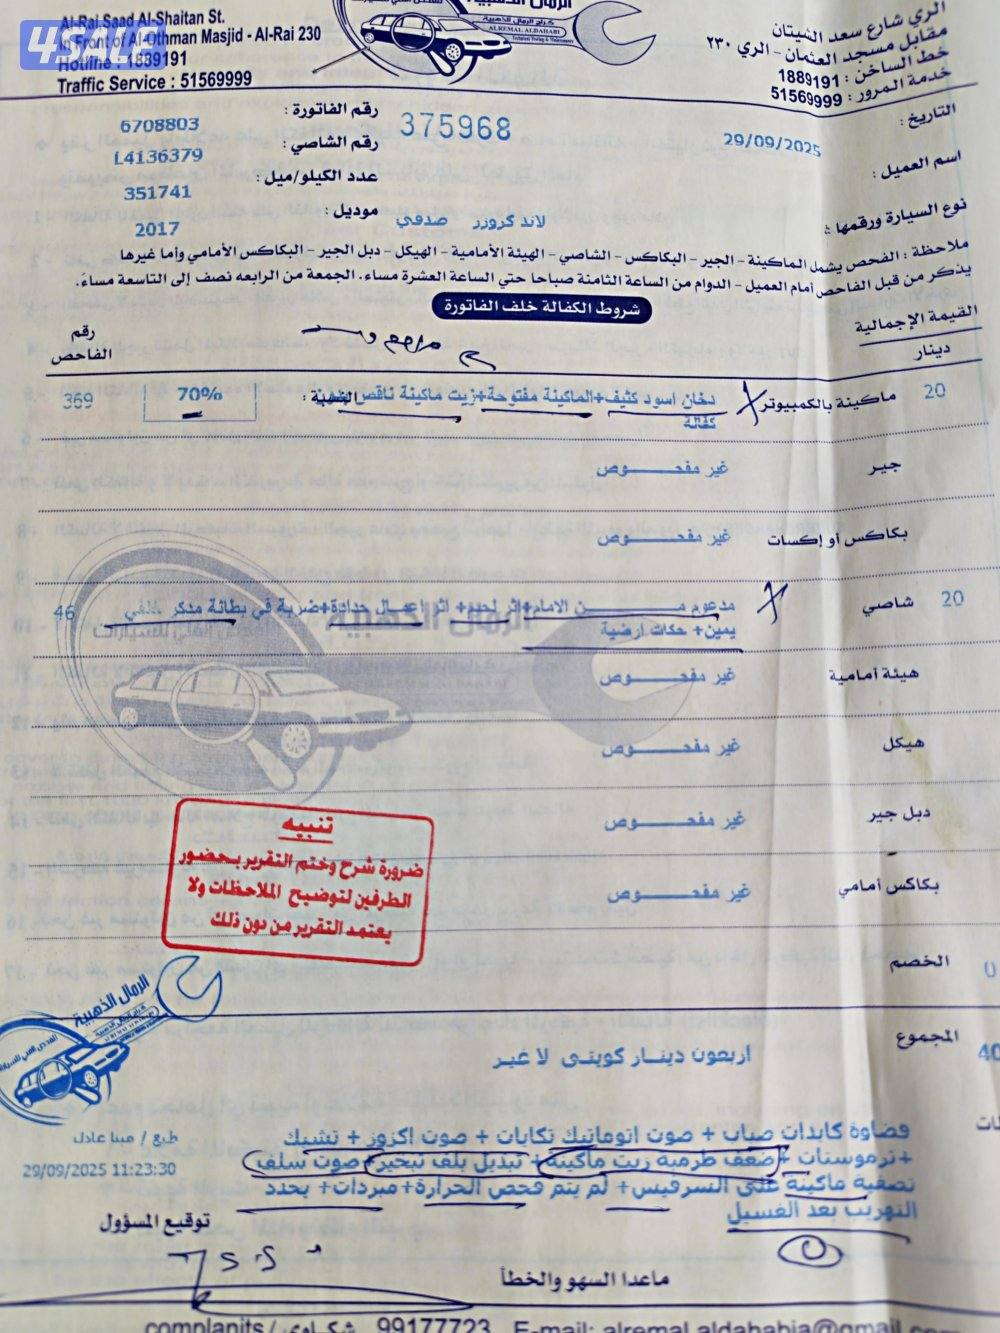 Al-Rai Saad Al-Shaitan St.
In Front of Al-Othman Masjid - Al-Rai 230
Hotline : 1889191
Traffic Service : 51569999
4SALE
كراج الرمال الذهبية
ALREMAL ALDAHABI
الري شارع سعد الشيتان
مقابل مسجد العثمان - الري ٢٣٠
خط الساخن : 1889191
خدمة المرور : 51569999
رقم الفاتورة : 6708803
375968
التاريخ : 29/09/2025
رقم الشاصي : L4136379
اسم العميل :
عدد الكيلو/ميل : 351741
نوع السيارة ورقمها : لاند كروزر صدفي
موديل : 2017
ملاحظة : الفحص يشمل الماكينة - الجير - البكاكس - الشاصي - الهيئة الأمامية - الهيكل - دبل الجير - البكاكس الأمامي وأما غيرها
يذكر من قبل الفاحص أمام العميل - الدوام من الساعة الثامنة صباحا حتي الساعة العشرة مساء. الجمعة من الرابعه نصف إلى التاسعة مساءً.
شروط الكفالة خلف الفاتورة
القيمة الإجمالية
دينار
رقم
الفاحص
20 ماكينة بالكمبيوتر دخان اسود كثيف+الماكينة مفتوحة+زيت ماكينة ناقص النسبة : 70% 369
كفالة
جير غير مفحـــوص
بكاكس أو إكسات غير مفحـــوص
20 شاصي مدعوم مـــن الامام+اثر لحيم+ اثر اعمال حدادة+ضربة في بطانة مدكر خلفي 46
يمين+ حكات ارضية
هيئة أمامية غير مفحـــوص
هيكل غير مفحـــوص
دبل جير غير مفحـــوص
بكاكس أمامي غير مفحـــوص
تنبيه
ضرورة شرح وختم التقرير بحضور
الطرفين لتوضيح الملاحظات ولا
يعتمد التقرير من دون ذلك
الخصم 0
الرمال الذهبية
المجموع 40
اربعون دينار كويتى لا غير
فضاوة كابدات صباب + صوت اتوماتيك تكايات + صوت اكزوز + تشيك
+ترموستات +ضعف طرمبة زيت ماكينة+ تبديل بلف تبخير+ صوت سلف
تصفية ماكينة على السرفيس+ لم يتم فحص الحرارة+مبردات+ يحدد
التهريب بعد الغسيل
طبع / مينا عادل
29/09/2025 11:23:30
توقيع المسؤول
ماعدا السهو والخطأ
complanits / شكاوى 99177723 E-mail: alremal.aldahabia@gmail.com